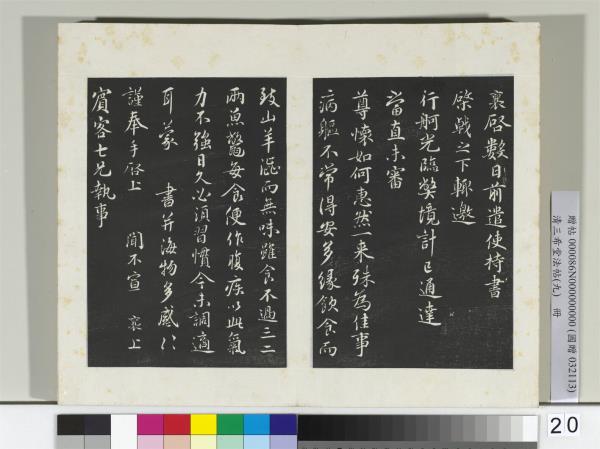 襄啓數日前遣使持書
棨戟之下輙邀
行舸光臨弊境計已通達
當直未審
尊懷如何惠然一来殊為佳事
病軀不常得安多縁飲食而
致山羊㴔而無味雖食不過三二
兩魚鼈每食便作腹疾以此氣
力不強日久必須習慣今未調適
耳蒙 書并海物多感〻
謹奉手啓上 聞不宣 襄上
賓客七兄執事
贈帖 000086N000000000 (國贈 032113)
清三希堂法帖(九) 冊
20